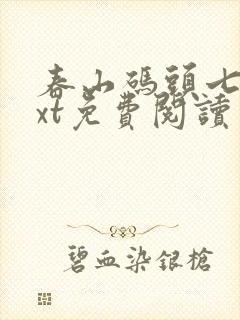 春山碼頭七
xt免費閱讀
碧血染銀槍